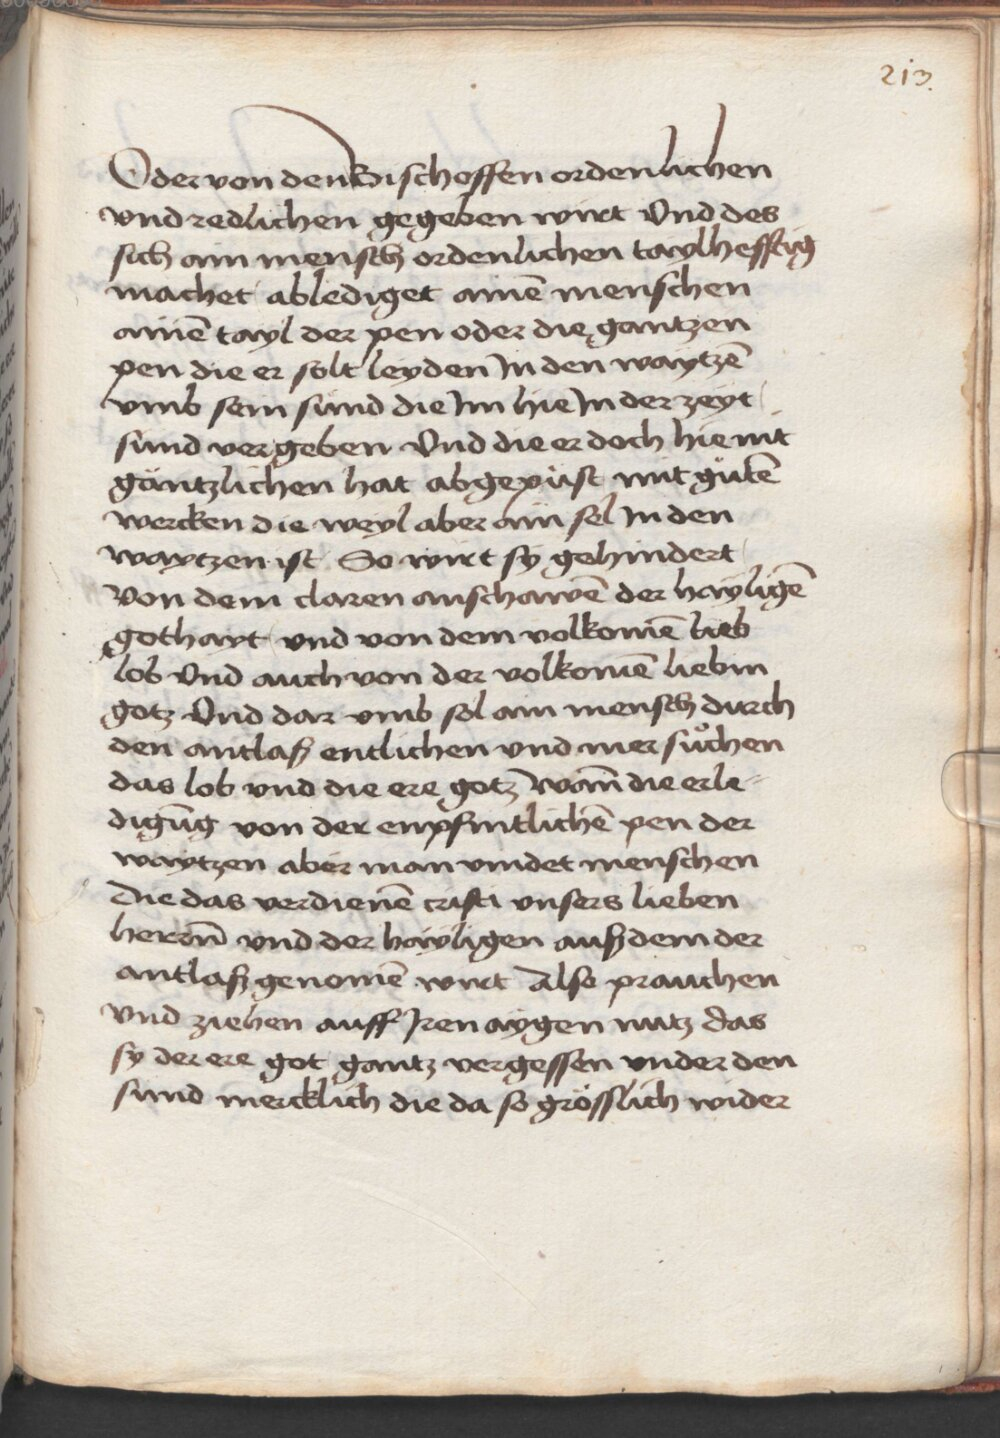 213.
Oder von den Bischoffen ordenlichen
vnd redlichen gegeben wirt Vnd des
sich ain mensch ordenlichen taylhefftig
machet ablediget ainē menschen
ainē tayl der pen oder die gantzen
pen die er solt leyden In den waytzē
vmb sein sünd die Im hie In der zeyt
sind vergeben Vnd die er doch hie nit
gäntzlichen hat abgepüst mit gůtē
wercken die weyl aber ain sel In den
waytzen ist So wirt sy gehindert
Von dem claren anschawē der hayligē
gothayt vnd von dem volkomē lieb
lob Vnd auch von der volkomē liebin
gotz Vnd dar vmb sol ain mensch durch
den antlaß entlichen vnd mer sůchen
das lob vnd die ere gotz Wan̄ die erle-
digūg von der enpfintlichē pen der
waytzen aber man vindet menschen
Die das verdienē cristi vnsers lieben
herrn̄ vnd der hayligen auß dem der
antlaß genomē wirt Also prauchen
Vnd ziehen auff Iren aygen nutz das
sy der ere got gantz vergessen vnder den
sind mercklich die da so grösslich wider